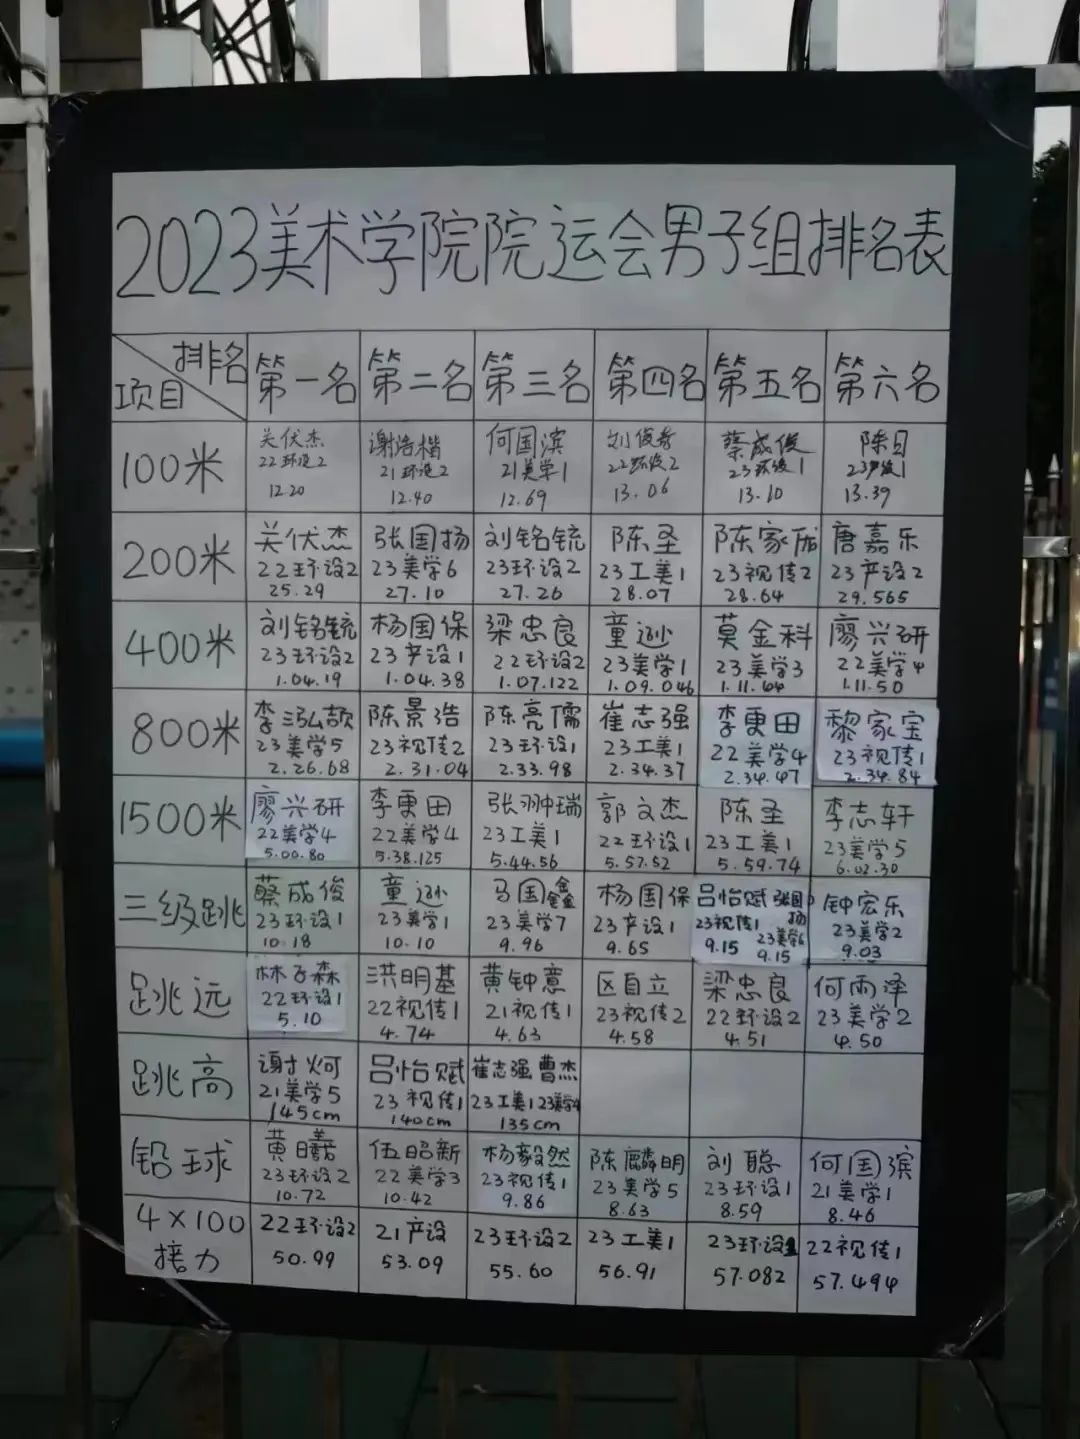 2023美术学院院运会男子组排名表
排名
项目
第一名 第二名 第三名 第四名 第五名 第六名
100米
关伏杰 谢浩楷 何国滨 刘俊 蔡成俊 陈目
22环设2 21环设2 21美学1 22环设2 23环设1 23产设1
12.20 12.40 12.69 13.06 13.10 13.39
200米
关伏杰 张国扬 刘铭铳 陈圣 陈家 唐嘉乐
22环设2 23美学6 23环设2 23工美1 23视传2 23产设2
25.29 27.10 27.26 28.07 28.64 29.565
400米
刘铭铳 杨国保 梁忠良 童逊 莫金科 廖兴研
23环设2 23产设1 22环设2 23美学1 23美学3 22美学4
1.04.19 1.04.38 1.07.122 1.09.046 1.11.44 1.11.50
800米
李泓颉 陈景浩 陈亮儒 崔志强 李更田 黎家宝
23美学5 23视传2 23环设1 23工美1 22美学4 23视传1
2.26.68 2.31.04 2.33.98 2.34.37 2.34.47 2.34.84
1500米
廖兴研 李更田 张翀瑞 郭文杰 陈圣 李志轩
22美学4 22美学4 23工美1 22环设1 23工美1 23美学5
5.00.80 5.38.125 5.44.56 5.57.52 5.59.74 6.02.30
三级跳
蔡成俊 童逊 马国鑫 杨国保 吕怡赋 张国扬 钟宏乐
23环设1 23美学1 23美学7 23产设1 23视传1 23美学6 23美学2
10.18 10.10 9.96 9.65 9.15 9.15 9.03
跳远
林子森 洪明基 黄钟意 区自立 梁忠良 何雨泽
22环设1 22视传1 21视传1 23视传2 22环设2 23美学2
5.10 4.74 4.63 4.58 4.51 4.50
跳高
谢炯 吕怡赋 崔志强 曹杰
21美学5 23视传1 23工美1 23美学4
145cm 140cm 135cm
铅球
黄曦 伍昭新 杨毅然 陈麟明 刘聪 何国滨
23环设2 22美学3 23视传1 23美学5 23环设1 21美学1
10.72 10.42 9.86 8.63 8.59 8.46
4×100
接力
22环设2 21产设 23环设2 23工美1 23环设1 22视传1
50.99 53.09 55.60 56.91 57.082 57.494